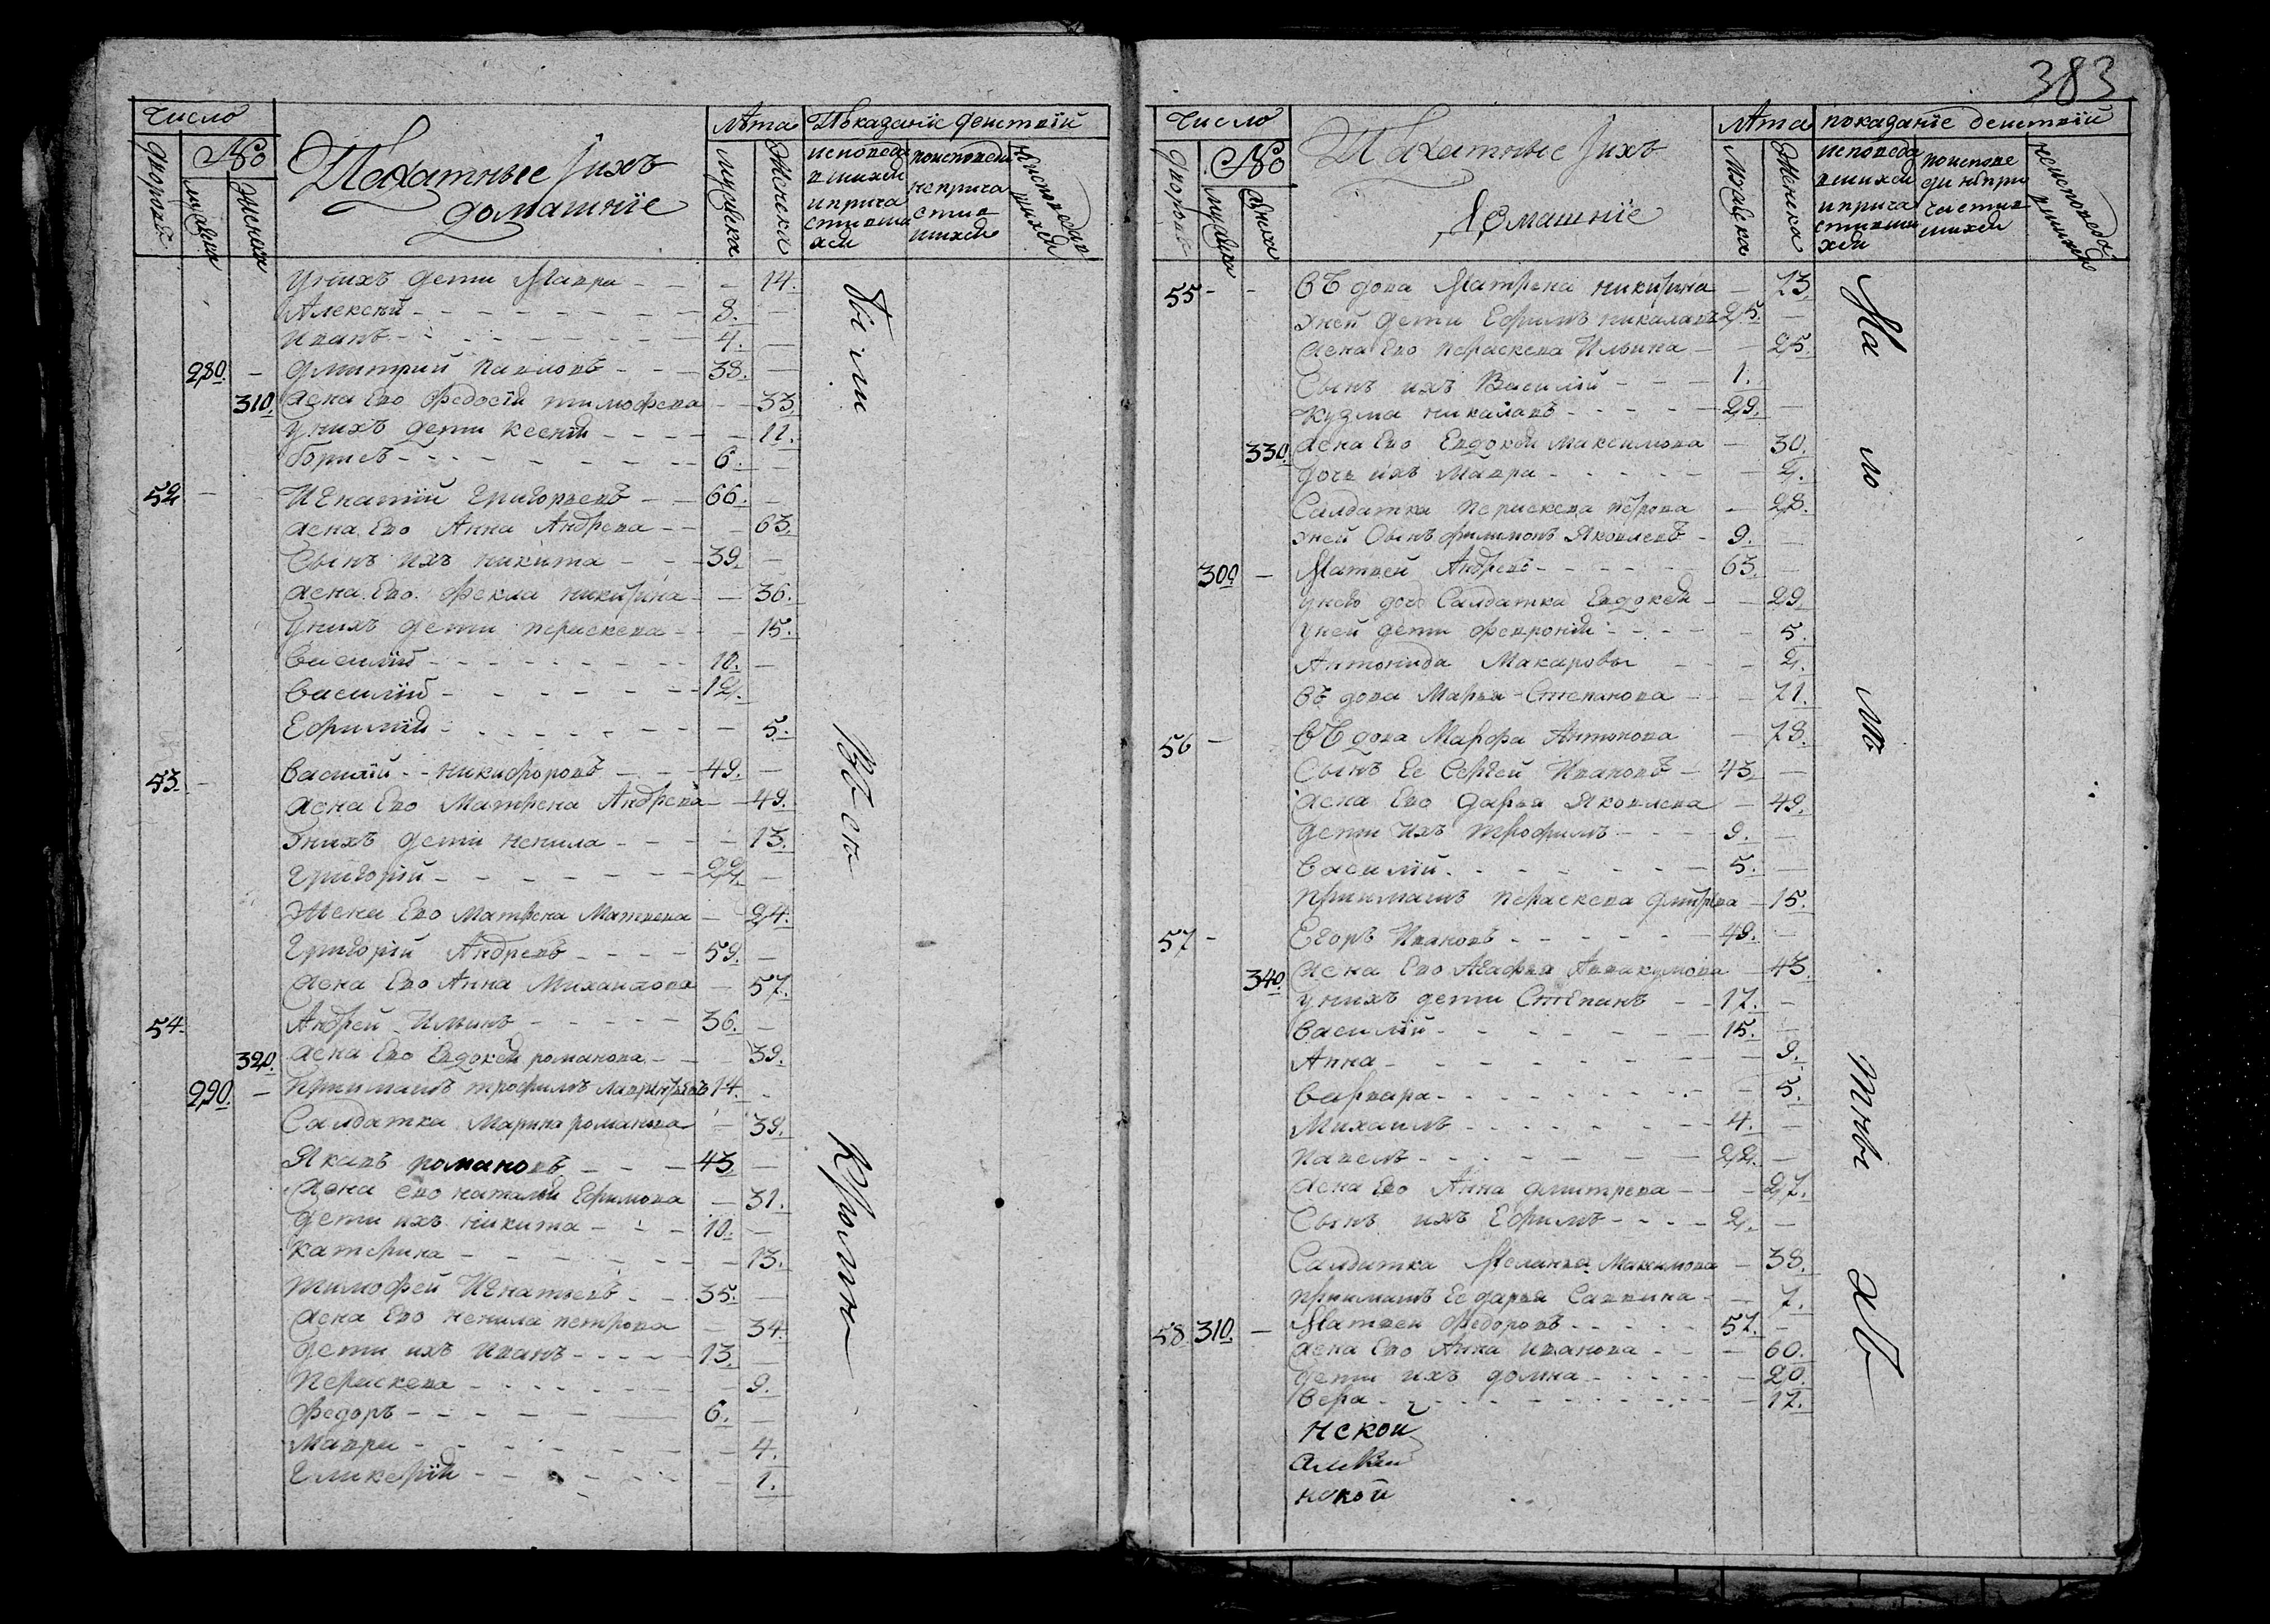 Число
№
Дворовъ
мужска
женска
Пѣхатные ј ихъ
домашнїе
Лѣта
мужска
женски
Показанїе действїй
исповеда
вшихся
и прича
стивши
хся
по исповеди
не прича
стив
шихся
не исповедав
шихся
У нихъ дети Мавра - - - 14.
Алексѣй - - - 8. -
Иванъ - - - 4. -
280. - Дмитрий Павловъ - - - 38. -
310. жена Ево Федосїя тимофева - - 33.
У нихъ дети Ксенїя - - - 11.
Борисъ - - - 6. -
52 - - Игнатїй Григорьевъ - - 66. -
жена Ево Анна Андрева - - - 63.
Сынъ ихъ никита - - - 39. -
жена Ево Фекла никитина - - 36.
У нихъ дети пераскева - - - 15.
Василїй - - - 10. -
Василїй - - - 12.
Ефимїя - - - 5.
53. - Василїй - - никифоровъ - - - 49. -
жена Ево Матрена Андрева - - 49.
У нихъ дети ненила - - - 13.
Григорїй - - - 22. -
Жена Ево Матрена Матвева - 24.
Григорїй Андревъ - - - 59. -
жена Ево Анна Михаилова - 57.
54. Андрей Ильинъ - - - 36. -
320. жена Ево Евдокея романова - - - 39.
290. - Приимышъ трофимъ Лаврентьевъ 14. -
Салдатка Марина романова - 39.
Якавъ романовъ - - - 43. -
жена ево наталья Ефимова - 31.
дети ихъ никита - - - 10. -
катерина - - - 13.
Тимофей Игнатьевъ - - 35. -
жена Ево ненила петрова - 34.
дети ихъ Иванъ - - - 13. -
Пераскева - - - 9.
Федоръ - - - 6. -
Мавра - - - 4.
Гликерїя - - - 1.
Были
Всѣ
Кромѣ
383
Число
№
Дворовъ
мужска
женска
Пѣхатные ј ихъ
Домашнїе
Лѣта
Мужска
Женска
показанїе действїй
исповеда
вшихся
и прича
стивши
хся
по испове
ди не при
частив
шихся
не исповеда
вшихся
55 - - Въ дова Матрена никитина - 73.
У ней дети Ефимъ никалавъ 25. -
жена Ево пераскева Ильина - - 25.
Сынъ ихъ Василїй - - - 1.
Кузма никалавъ - - - 29. -
330. жена Ево Евдокея максимова - 30.
дочь ихъ Мавра - - - 2.
Салдатка пераскева петрова - 28.
У ней Сынъ филимонъ Яковлевъ - 9. -
300 - Матвей Андревъ - - - 63. -
У нево дочь Салдатка Евдокея - - 29.
У ней дети Феврония - - - 5.
Антонида Макаровы - - 2.
Въ дова Марья Степанова - - 71.
56 - Въ дова Марфа Антонова - 78.
Сынъ Ее Сергей Ивановъ - 43. -
жена Ево Дарья Яковлева - 49.
дети ихъ трофимъ - - - 9. -
Василїй - - - 5. -
Приимышъ пераскева Дмитрева - 15.
57 - Егоръ Ивановъ - - - 49. -
340. жена Ево Агафья Авакумова - 43.
У нихъ дети Степанъ - - 17. -
Василїй - - - 15. -
Анна - - - 9.
Варвара - - - 5.
Михаилъ - - - 4. -
Павелъ - - - 22. -
жена Ево Анна дмитрева - - - 27.
Сынъ ихъ Ефимъ - - - 2. -
Салдатка Меланья Максимова - 38.
Приимышъ Ее дарья Саввина - - 7.
58. 310. - Матвей Федоровъ - - - 57. -
жена Ево Анна Иванова - - - 60.
дети ихъ домна - - - 20.
Вера - - - 17.
нской
нской
Ма
ло
лѣ
тны
хъ